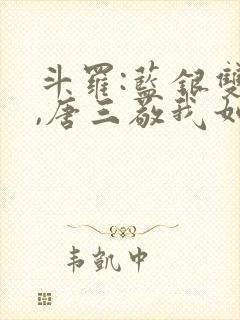 斗羅:藍銀雙
,唐三敬我如
韦凱中